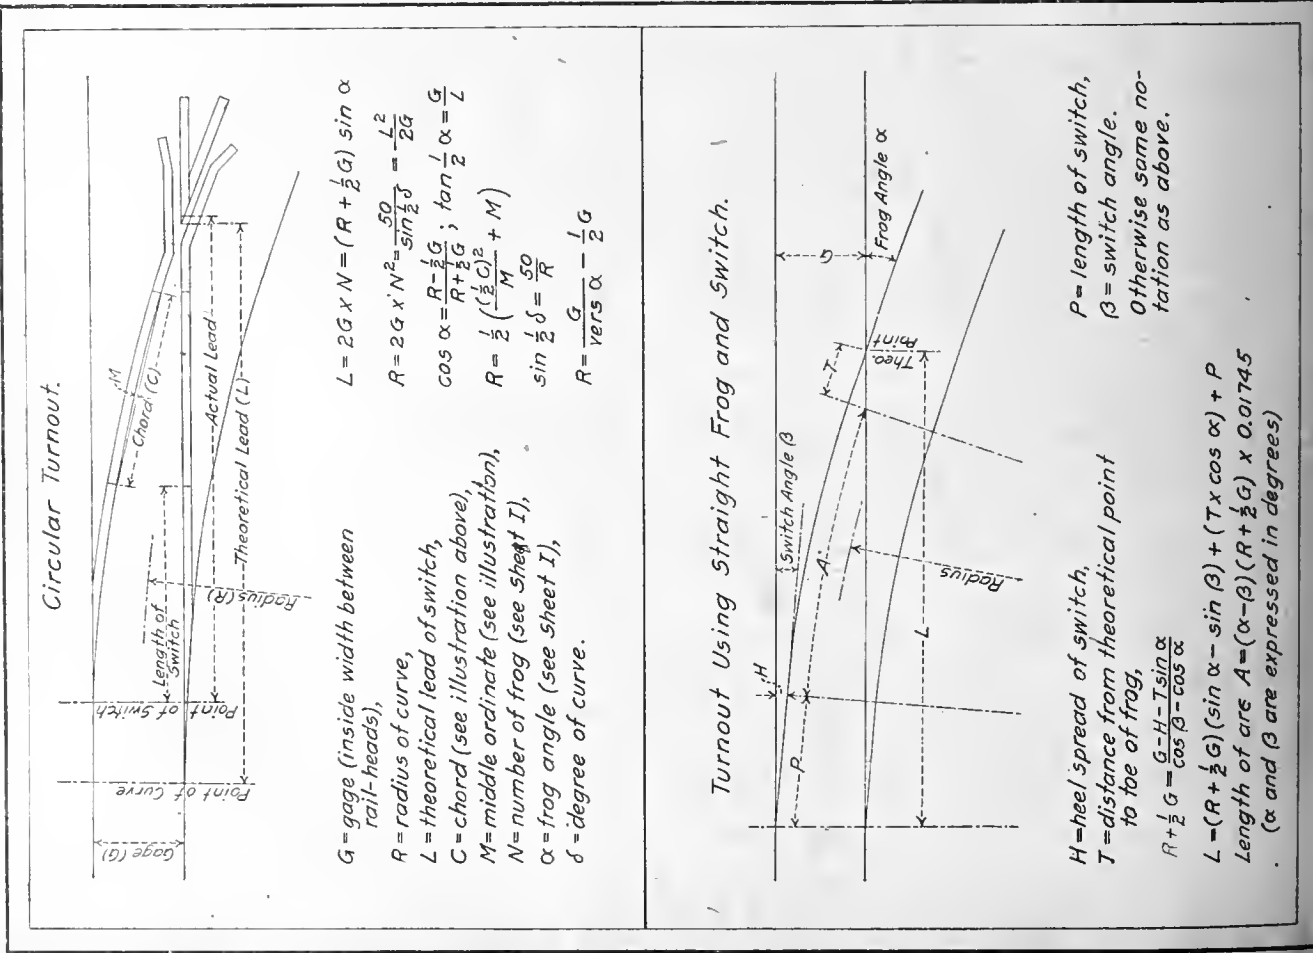 Circular Turnout.
M
Chord (C)
Actual Lead
Theoretical Lead (L)
Length of
Switch
Radius (R)
Point of Switch
Point of Curve
Gage (G)
G=gage (inside width between
rail-heads),
R=radius of curve,
L=theoretical lead of switch,
C=chord (see illustration above),
M=middle ordinate (see illustration),
N=number of frog (see Sheet I),
α=frog angle (see Sheet I),
δ=degree of curve.
L = 2G x N = (R + ½G) sin α
R = 2G x N² = 50 / sin ½ δ = L² / 2G
cos α = (R - ½G) / (R + ½G) ; tan ½ α = G / L
R = ½ ((½C)² / M + M)
sin ½ δ = 50 / R
R = G / vers α - ½ G
Turnout Using Straight Frog and Switch.
G
Frog Angle α
Theo.
Point
T
Switch Angle β
A
Radius
H
P
L
H=heel spread of switch,
T=distance from theoretical point
to toe of frog,
R + ½ G = (G-H-T sin α) / (cos β - cos α)
L=(R + ½G)(sin α - sin β) + (T x cos α) + P
Length of arc A=(α-β)(R + ½G) x 0.01745
(α and β are expressed in degrees)
P= length of switch,
β = switch angle.
Otherwise same no-
tation as above.